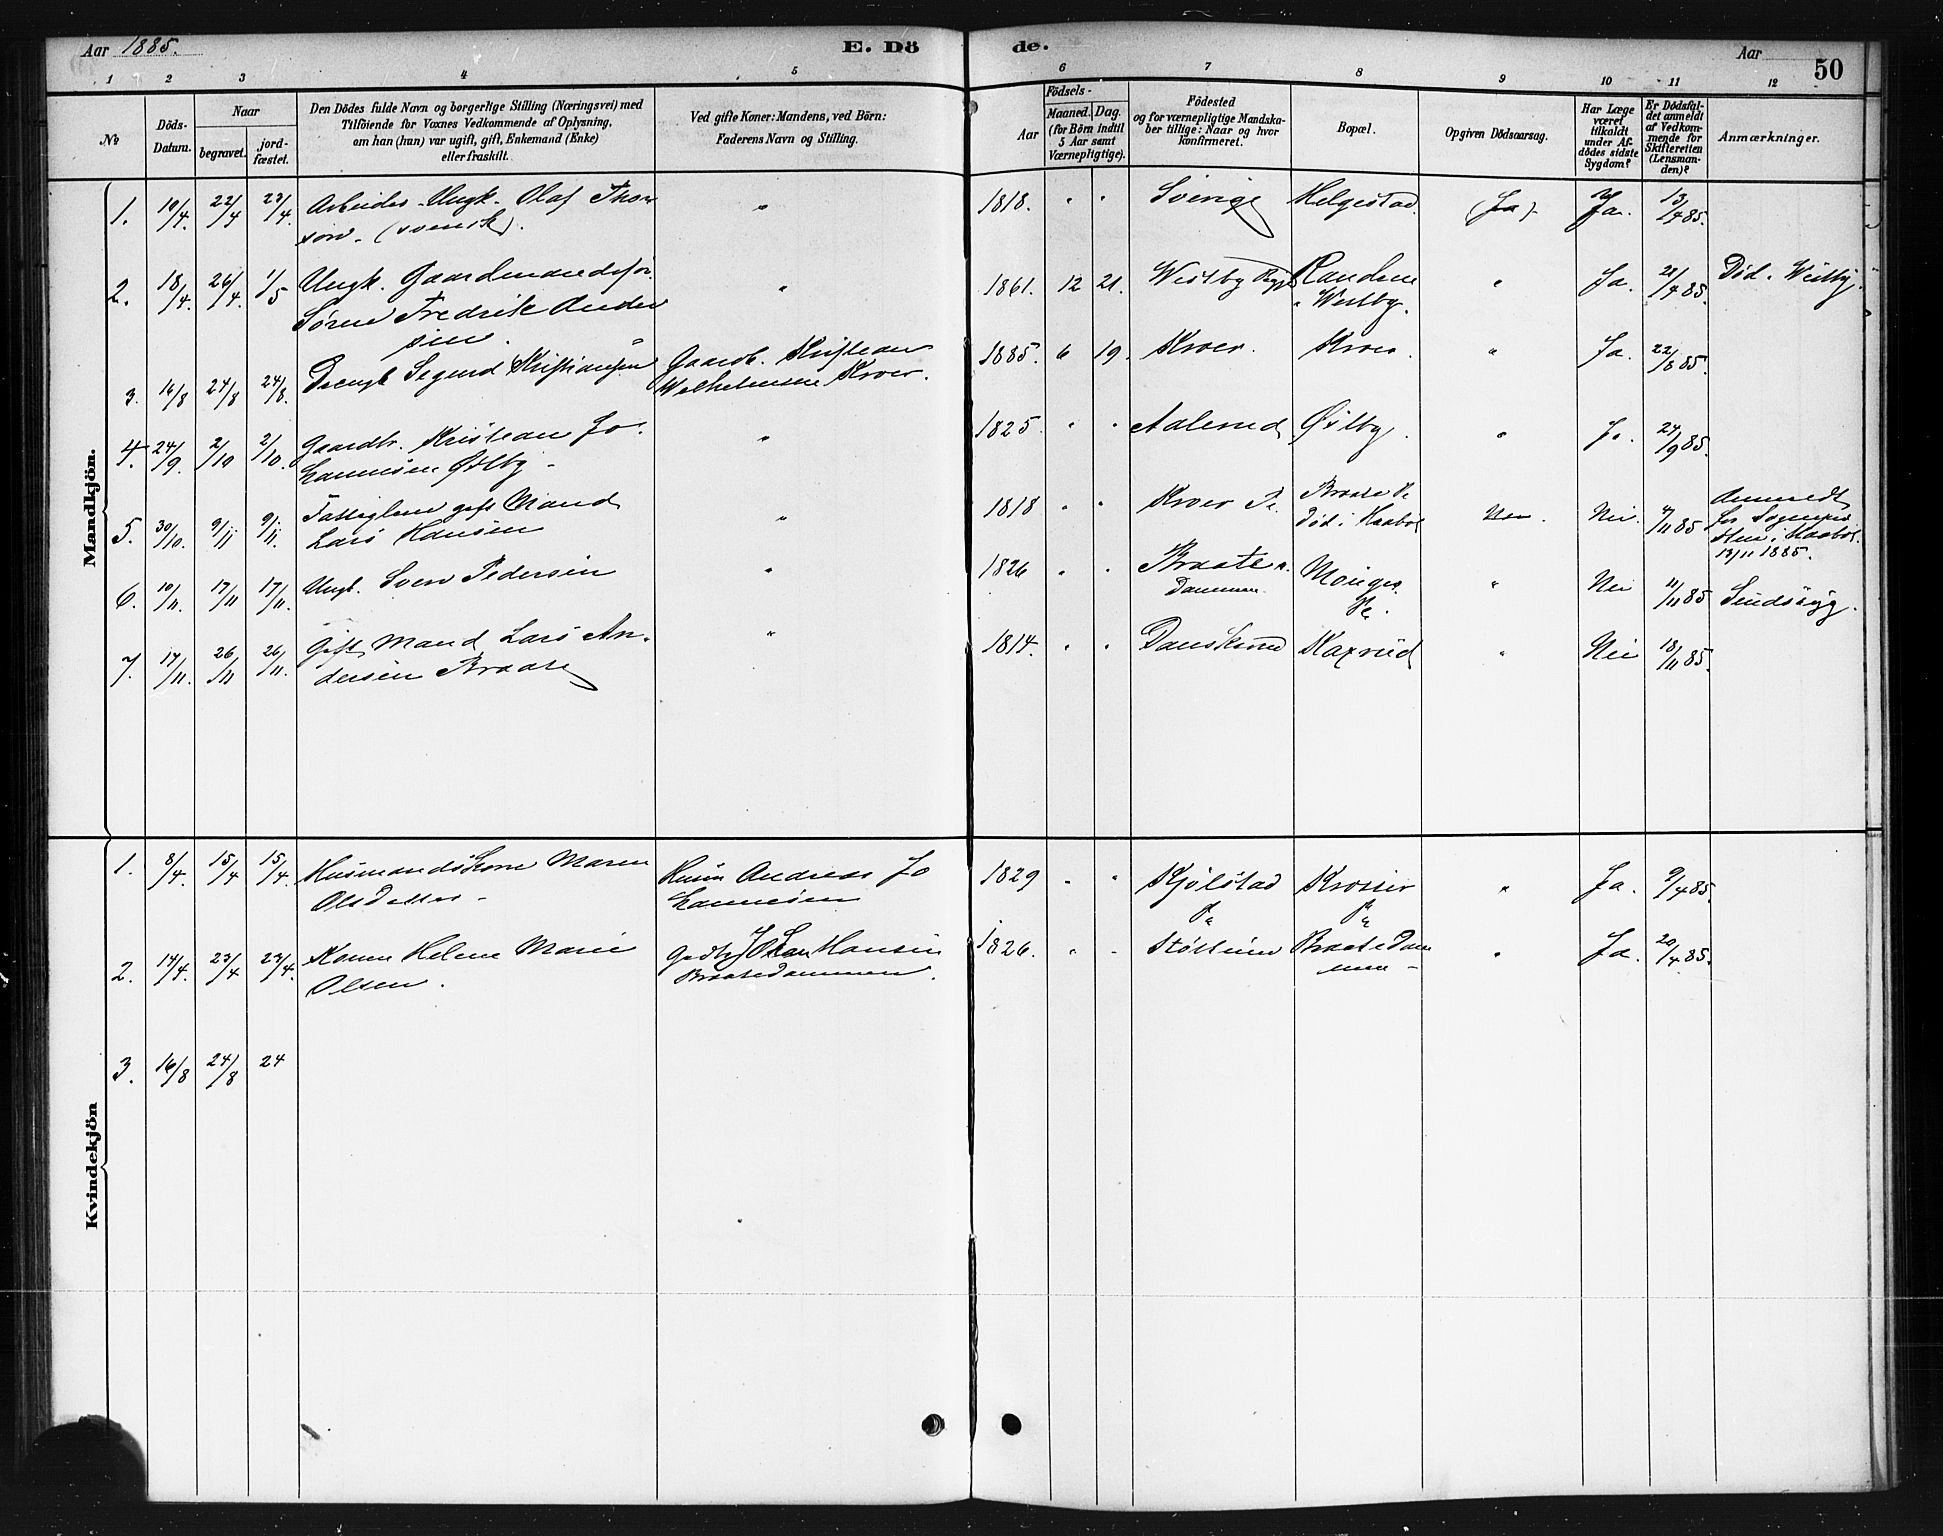 Aar 1885.
E. Dö
de.
Aar
50
1 2 3 4 5 6 7 8 9 10 11 12
No
Döds-
Datum.
Naar
begravet.
jord-
fæstet.
Den Dödes fulde Navn og borgerlige Stilling (Næringsvei) med
Tilföiende for Voxnes Vedkommende af Oplysning,
om han (hun) var ugift, gift, Enkemand (Enke)
eller fraskilt.
Ved gifte Koner: Mandens, ved Börn:
Faderens Navn og Stilling.
Födsels-
Aar
Maaned.
Dag.
(for Börn indtil
5 Aar samt
Værnepligtige).
Födested
og for værnepligtige Mandska-
ber tillige: Naar og hvor
konfirmeret.
Bopæl.
Opgiven Dödsaarsag.
Har Læge
været
tilkaldt
under Af-
dödes sidste
Sygdom?
Er Dödsfal-
det anmeldt
af Vedkom-
mende for
Skifteretten
(Lensman-
den)?
Anmærkninger.
Mandkjön.
1. 10/4. 22/4 23/4 Arbeider. Ungk. Olaf Thor
sen. (svensk). " 1818. " " Sverige Helgestad. (Ja) Ja. 13/4 85.
2. 18/4. 26/4. 1/5 Ungk. Gaardmandssøn
Søren Fredrik Ander
sen. " 1861. 12 21. Westby " Westby. " Ja. 21/4 85. Død i Westby.
3. 16/8 24/8 24/8. Drengb. Sigurd Kristiansen Gaardb. Kristian
Wilhelmsen Kroer. 1885. 6 19. Kroer. Kroer. " Ja. 22/8 85.
4. 24/9. 2/10 2/10. Gaardbr. Kristian Jo-
hannesen Østby - " 1825. " " Aalerud Østby. " Ja. 24/9 85.
5. 30/10. 9/11. 9/11. Fattiglem gift Mand
Lars Hansen " 1818 " " Kroer Braate
Død i Haabøl Nei. Nei. 4/11 85 Anmeldt
for Sognepre
sten i Haabøl
13/11 1885.
6. 10/11. 17/11 17/11. Ungk. Sven Pedersen " 1826 " " Braate
Dammen. " Nei 11/11 85 Sindssyg.
7. 17/11. 26/11 26/11. Gift Mand Lars An-
dersen Braate " 1814. " " Danskerud Kaxrud " Nei 18/11 85.
Kvindekjön
1. 8/4. 15/4 15/4. Husmandskone Maren
Olsdatter - Husm Andreas Jo
hannesen 1829 " " Kjølstad Krosser " Ja. 9/4 85.
2. 14/4. 23/4 23/4. Konen Helene Marie
Olsen. Hansen
Braatedammen. 1826. " " Støttum Braatedam
men - " Ja. 20/4 85.
3. 16/8 24/8 24